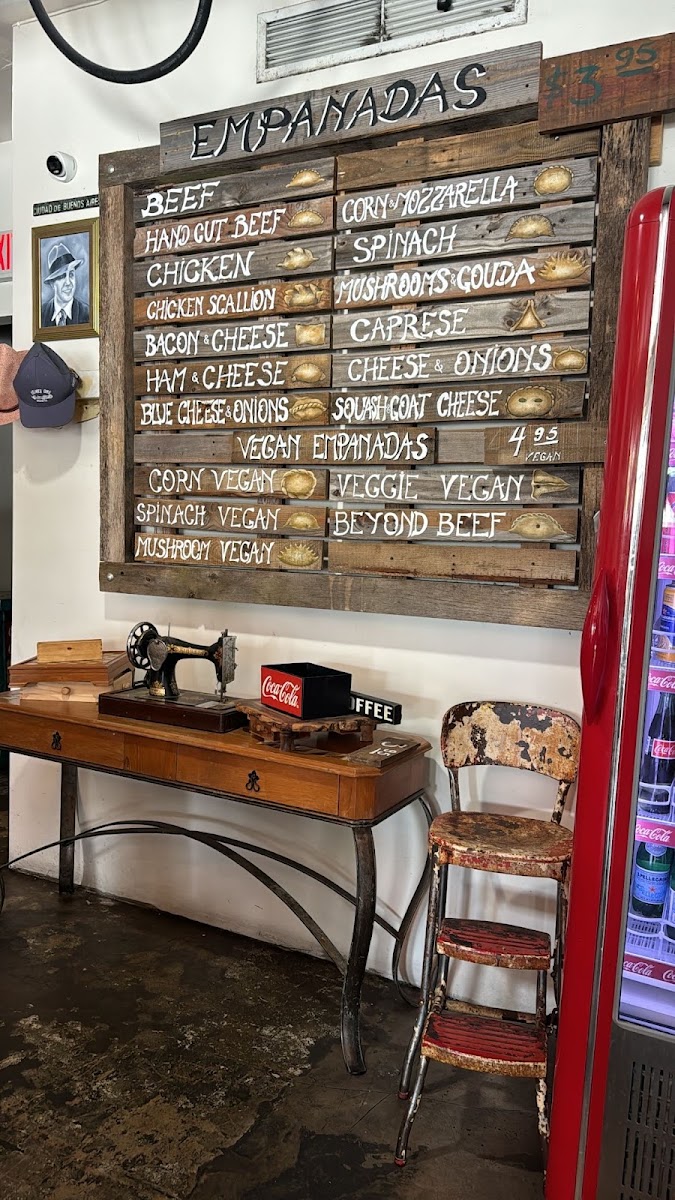 EMPANADAS
$3 95
CIUDAD DE BUENOS AIRES
XI
BEEF
HAND CUT BEEF
CHICKEN
CHICKEN SCALLION
BACON & CHEESE
HAM & CHEESE
BLUE CHEESE & ONIONS
CORN & MOZZARELLA
SPINACH
MUSHROOMS & GOUDA
CAPRESE
CHEESE & ONIONS
SQUASH & GOAT CHEESE
VEGAN EMPANADAS
4 95
VEGAN
CORN VEGAN
SPINACH VEGAN
MUSHROOM VEGAN
VEGGIE VEGAN
BEYOND BEEF
Coca-Cola
OFFEE
Coca
Coca-Cola
Coca-Cola
S.PELLEGRINO
Coca-Cola